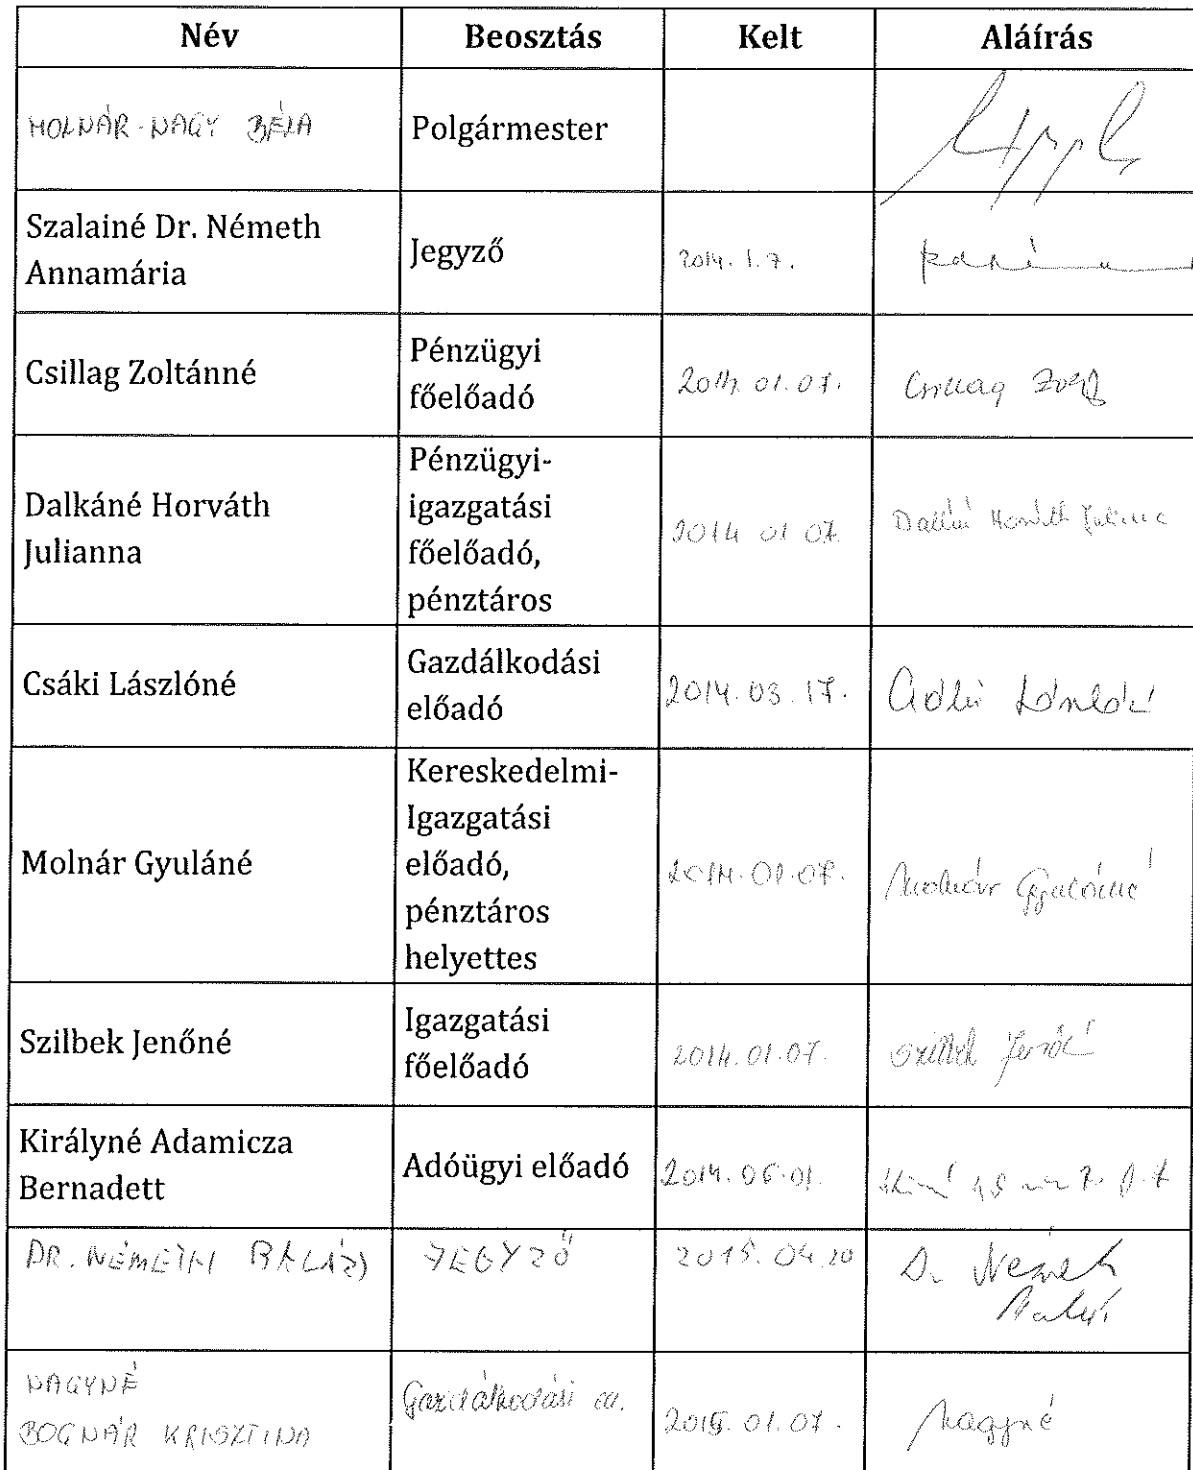 Név Beosztás Kelt Aláírás
MOLNÁR-NAGY BÉLA Polgármester
Szalainé Dr. Németh
Annamária
Jegyző 2014. 1. 7.
Csillag Zoltánné
Pénzügyi
főelőadó
2014. 01. 07. Csillag
Dalkáné Horváth
Julianna
Pénzügyi-
igazgatási
főelőadó,
pénztáros
2014 01 07. Dalkáné Horváth Julianna
Csáki Lászlóné
Gazdálkodási
előadó
2014. 03. 17. Csáki Lászlóné
Molnár Gyuláné
Kereskedelmi-
Igazgatási
előadó,
pénztáros
helyettes
2014. 01. 07. Molnár Gyuláné
Szilbek Jenőné
Igazgatási
főelőadó
2014. 01. 07. Szilbek Jenőné
Királyné Adamicza
Bernadett
Adóügyi előadó 2014. 06. 01.
DR. NÉMETH BALÁZS JEGYZŐ 2015. 04. 20 Dr. Németh
Balázs
NAGYNÉ
BOGNÁR KRISZTINA
Gazdálkodási ea. 2015. 01. 07. Nagyné